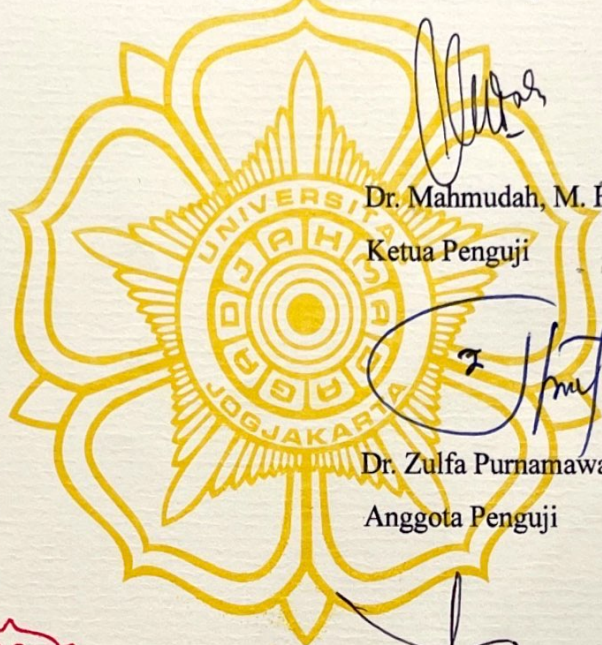 UNIVERSITA
GADJAH MADA
JOGJAKARTA
Dr. Mahmudah, M. H
Ketua Penguji
Dr. Zulfa Purnamawa
Anggota Penguji